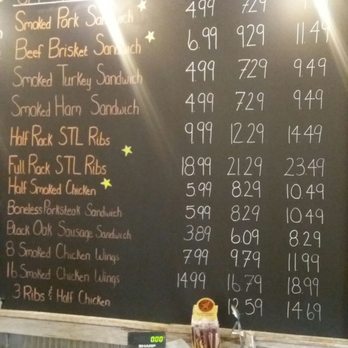 Smoked Pork Sandwich 4.99 7.29 9.49
Beef Brisket Sandwich 6.99 9.29 11.49
Smoked Turkey Sandwich 4.99 7.29 9.49
Smoked Ham Sandwich 4.99 7.29 9.49
Half Rack STL Ribs 9.99 12.29 14.49
Full Rack STL Ribs 18.99 21.29 23.49
Half Smoked Chicken 5.99 8.29 10.49
Boneless Porksteak Sandwich 5.99 8.29 10.49
Black Oak Sausage Sandwich 3.89 6.09 8.29
8 Smoked Chicken Wings 7.99 9.79 11.99
16 Smoked Chicken Wings 14.99 16.79 18.99
3 Ribs & Half Chicken 12.59 14.69
SHARP 0.00